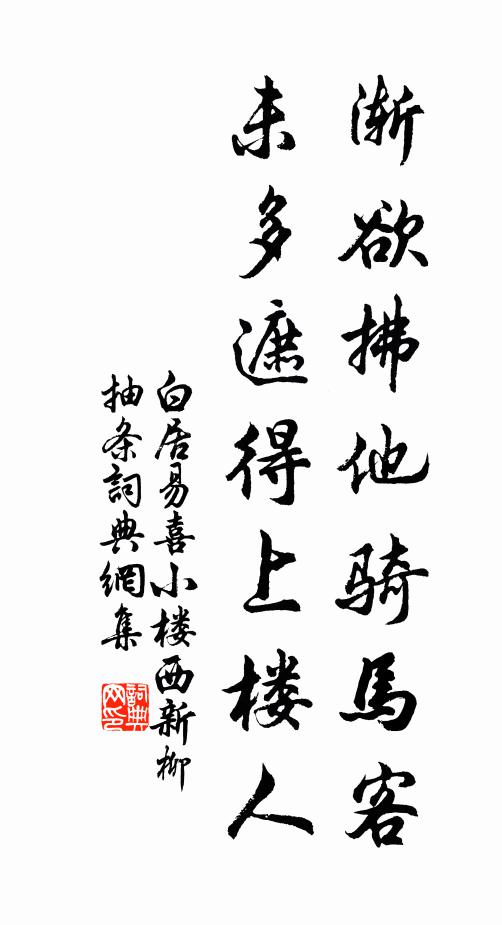 渐欲拂他骑馬客
未多遮得上楼人
白居易喜小楼西新柳
抽条詞典網集
詞典
网印